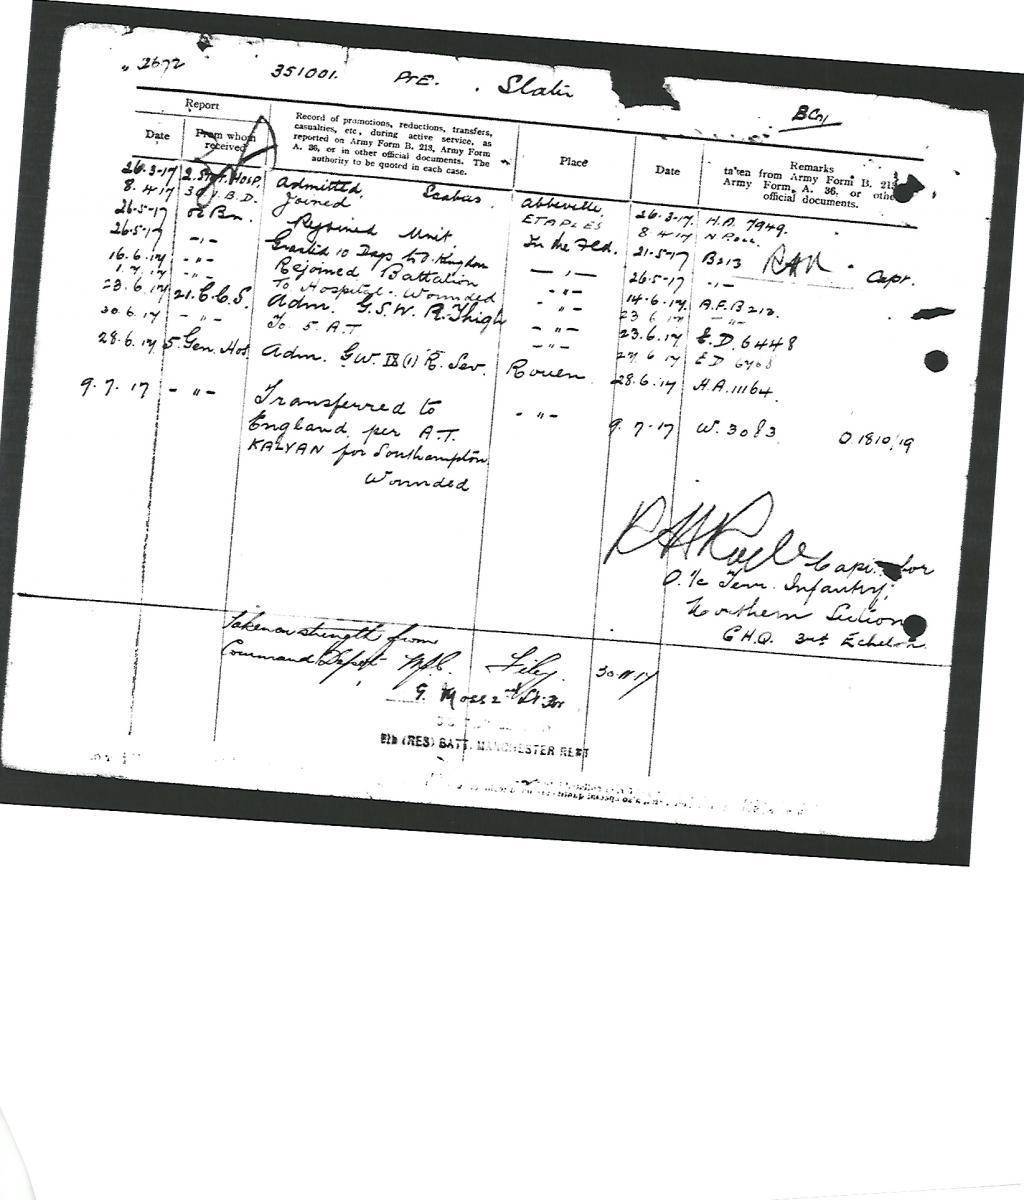 2672 351001. PTE. Slater
BCoy
Report
Date
From whom received
Record of promotions, reductions, transfers,
casualties, etc., during active service, as
reported on Army Form B. 213, Army Form
A. 36, or in other official documents. The
authority to be quoted in each case.
Place
Date
Remarks
taken from Army Form B. 213,
Army Form A. 36, or other
official documents.
26.3.17 2 Stat. Hosp. Admitted Scabies Abbeville 26.3.17. H.A. 7949.
8.4.17 I.B.D. Joined ETAPLES 8 4 17 N Roll.
26.5.17 Bn. Rejoined Unit. In the Fld. 21.5.17 B213 Capt.
26.5.17 -"- Granted 10 Days to U. Kingdom -"- 26.5.17 -"-
16.6.17 -"- Rejoined Battalion -"- 14.6.17. A.F.B 213.
1.7.17 -"- To Hospital. Wounded -"- 23 6 17 -"-
23.6.17 21. C.C.S. Adm. G.S.W. R. Thigh -"- 23.6.17 E.D. 6448
30.6.17 -"- To 5. A.T -"- 27 6 17 E D
28.6.17 5. Gen. Hos. Adm. G.W. IX (1) R. Sev. Rouen. 28.6.17 H.A. 11164.
9.7.17 -"- Transferred to -"- 9.7.17 W. 3083. O 1810/19
England per A.T.
KALYAN for Southampton.
Wounded
Capt. for
O. i/c Terr. Infantry,
Northern Section
G.H.Q. 3rd Echelon.
Taken on strength from
Command Depot Filey. 30 11 17
G. Moss 2nd Lt. for
(RES) BATT. MANCHESTER REGT